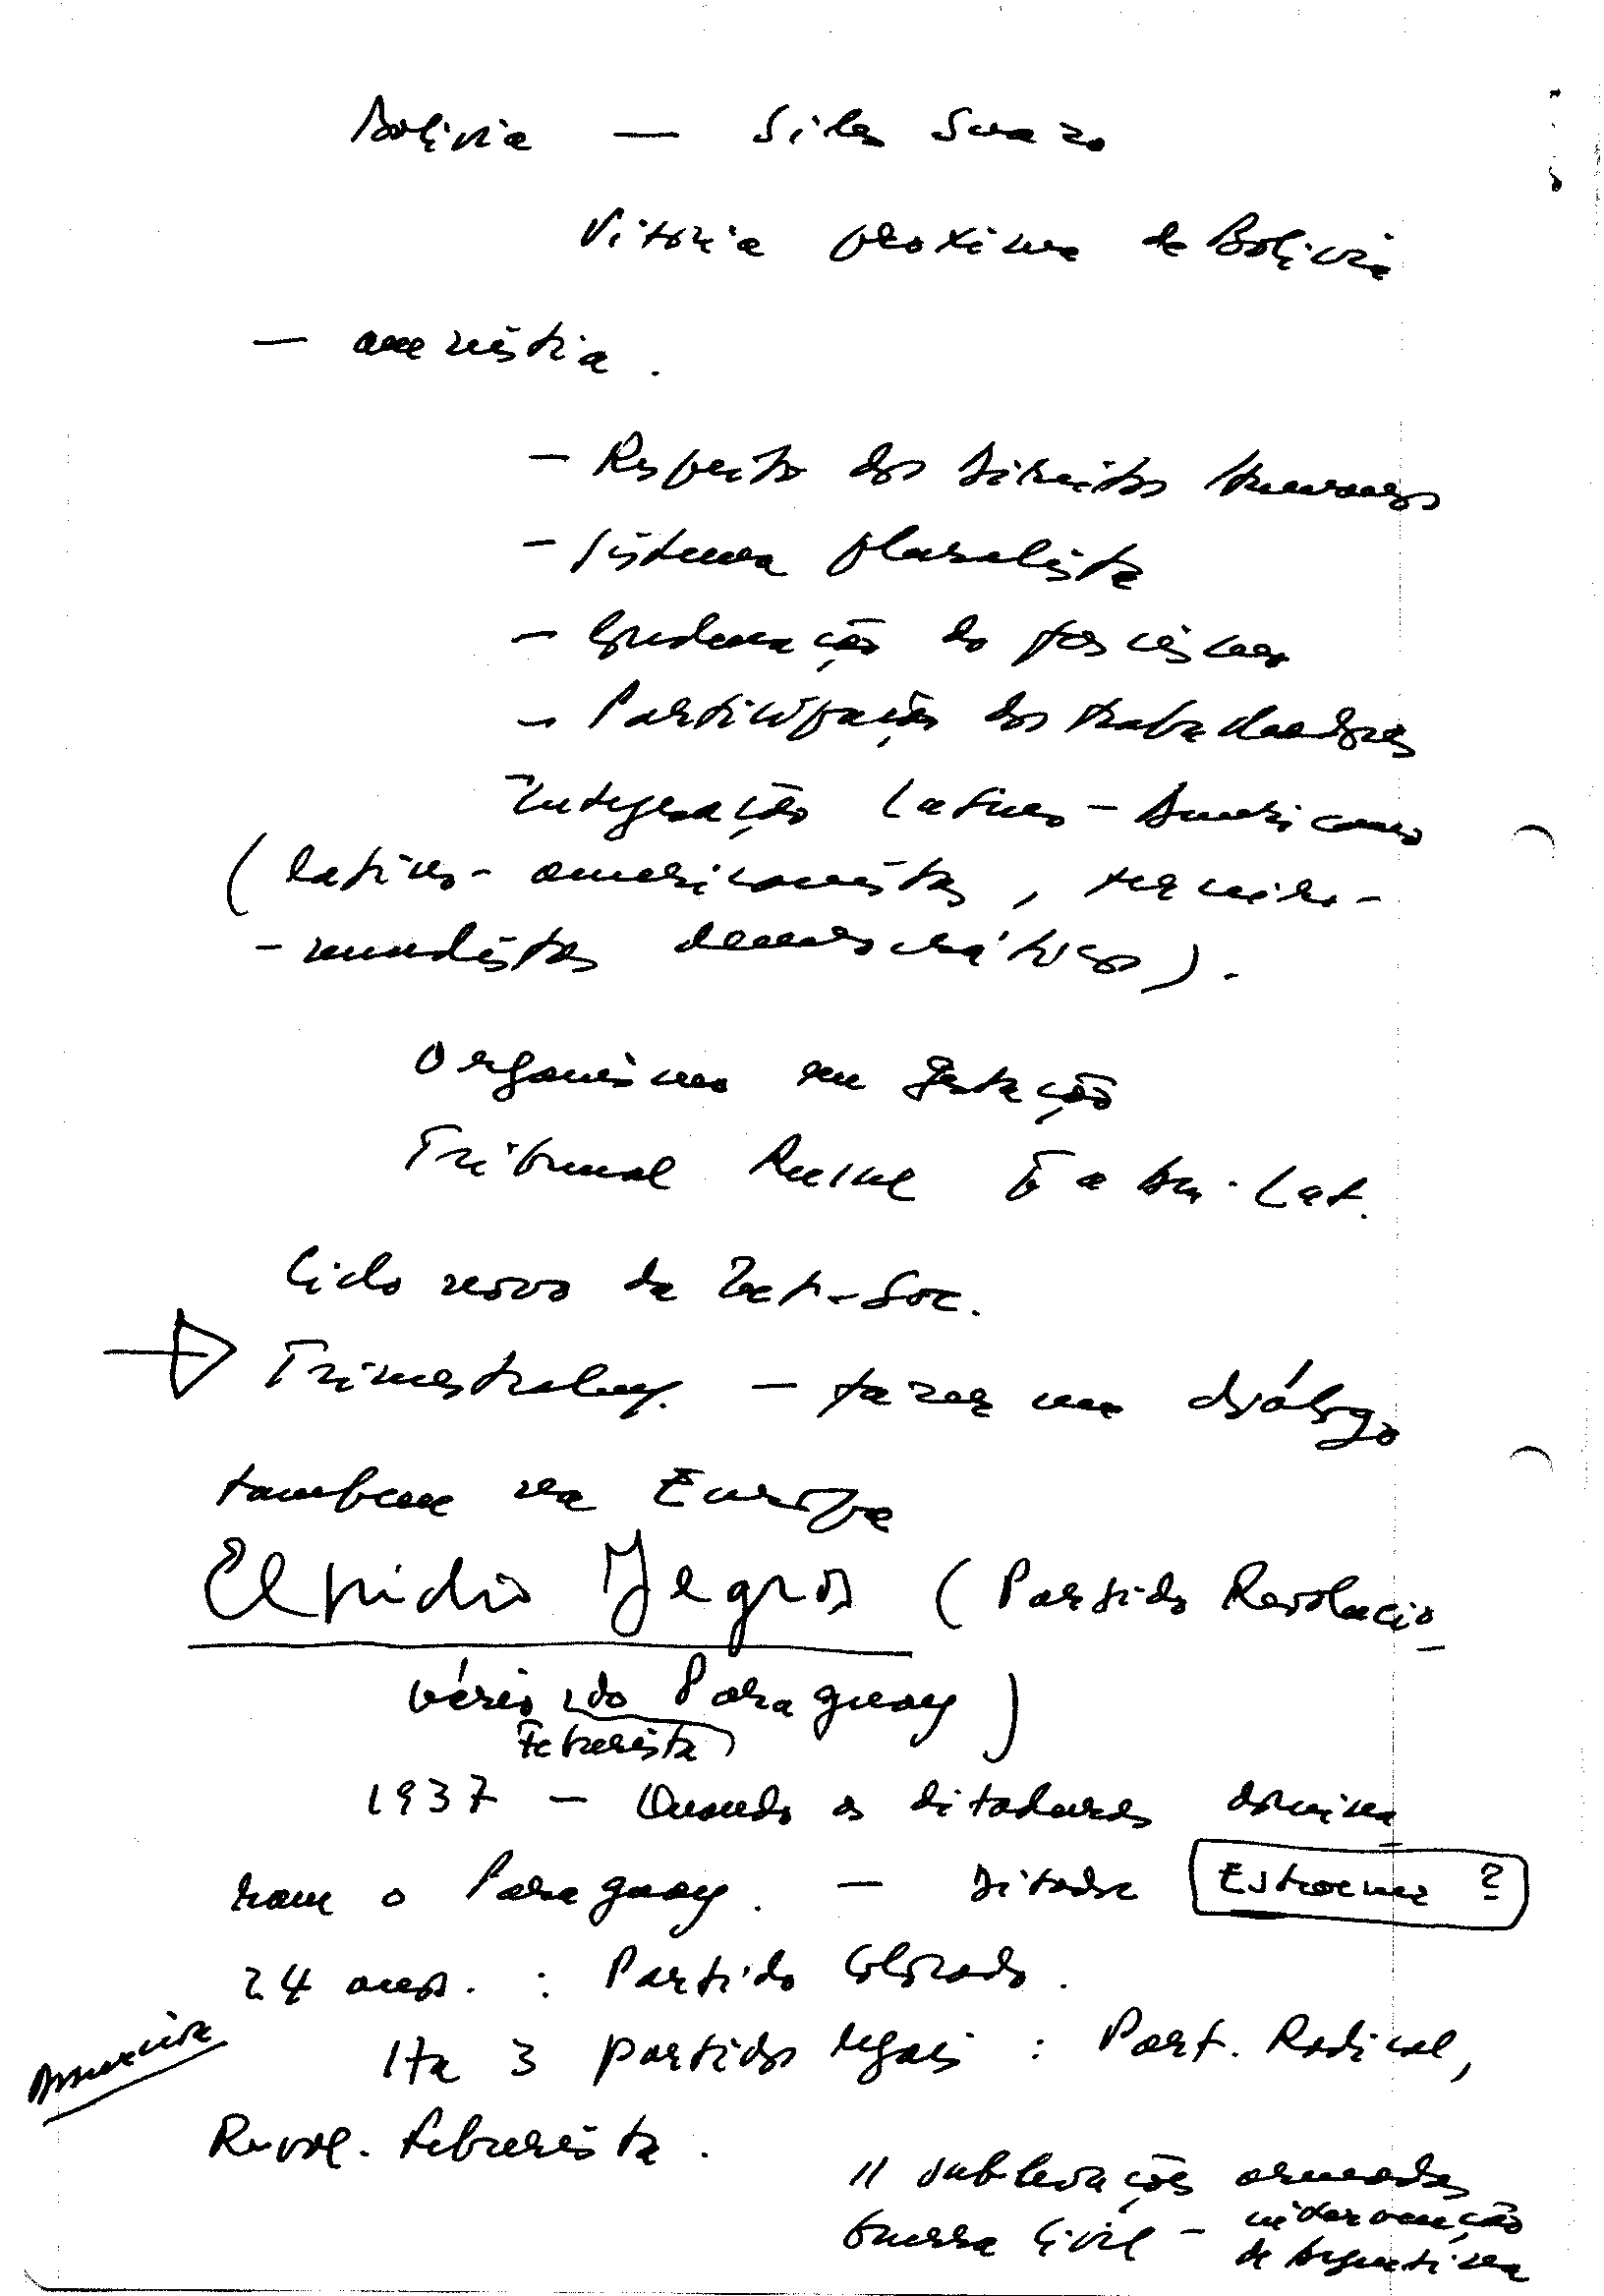 Bolivia — Siles Suazo
Vitória próxima da Bolivia
— anistia.
— Respeito dos Direitos Humanos
— Sistema pluralista
— Condenação do fascismo
— Participação dos trabalhadores
Integração Latino-Americano
(latino-americanistas, terceiro-
-mundistas democráticos).
Organismo em gestação
Tribunal a Am. Lat.
Ciclo novo da Int-Soc.
Trimestralmy. — fazer um diálogo
tambem na Europa
Elpidio Yegros (Partido Revolucio_
nário do Paraguay)
Febrerista
1937 — Quando os ditadores domina_
ram o Paraguay. — Ditador Estroener ?
24 anos. : Partido Colorado.
Assunción
Ha 3 partidos legais : Part. Radical,
Revol. Febrerista.
11 sublevações armadas
Guerra Civil — intervenção
da Argentina